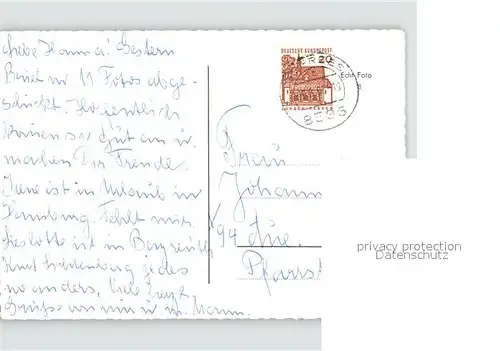 Liebe Hanna! Gestern
Brief m. 11 Fotos abge-
schickt. Hoffentlich
kommen sie gut an u.
machen Dir Freude.
ist in Urlaub in
Hamburg. Fehlt mir.
Lieselotte ist in Bayreuth
jedes
wo anders, Viele
Grüße von mir u. m. Mann.
DEUTSCHE BUNDESPOST
20
Echt Foto
8596
Frau
Johann
94
Pfarrst
privacy protection
Datenschutz